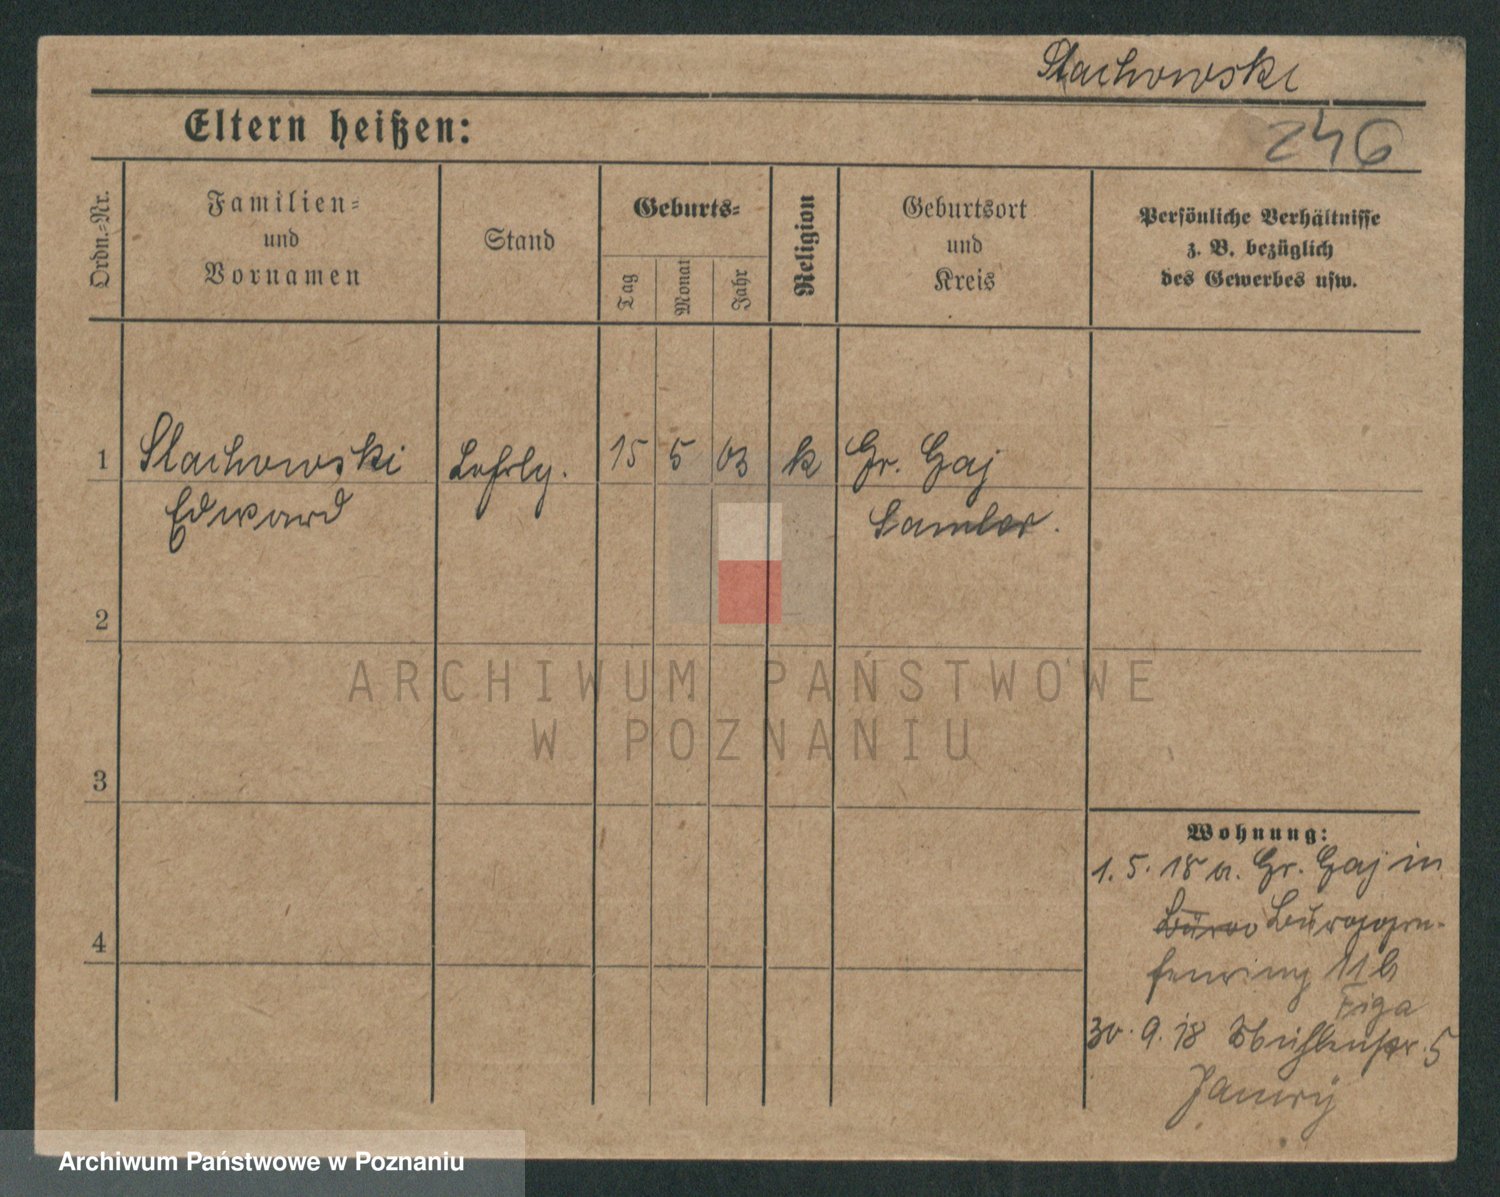 Stachowski
Eltern heißen:
246
Ordn.-Nr.
Familien-
und
Vornamen
Stand
Geburts-
Tag
Monat
Jahr
Religion
Geburtsort
und
Kreis
Persönliche Verhältnisse
z. B. bezüglich
des Gewerbes usw.
1 Stachowski Lehrlg. 15 5 03 k Gr. Gaj
Edward Samter.
2
3
4
Wohnung:
1. 5. 18 a. Gr. Gaj in
fenring 11 b
Figa
30. 9. 18 Mühlenstr. 5
ARCHIWUM PAŃSTWOWE
W POZNANIU
Archiwum Państwowe w Poznaniu